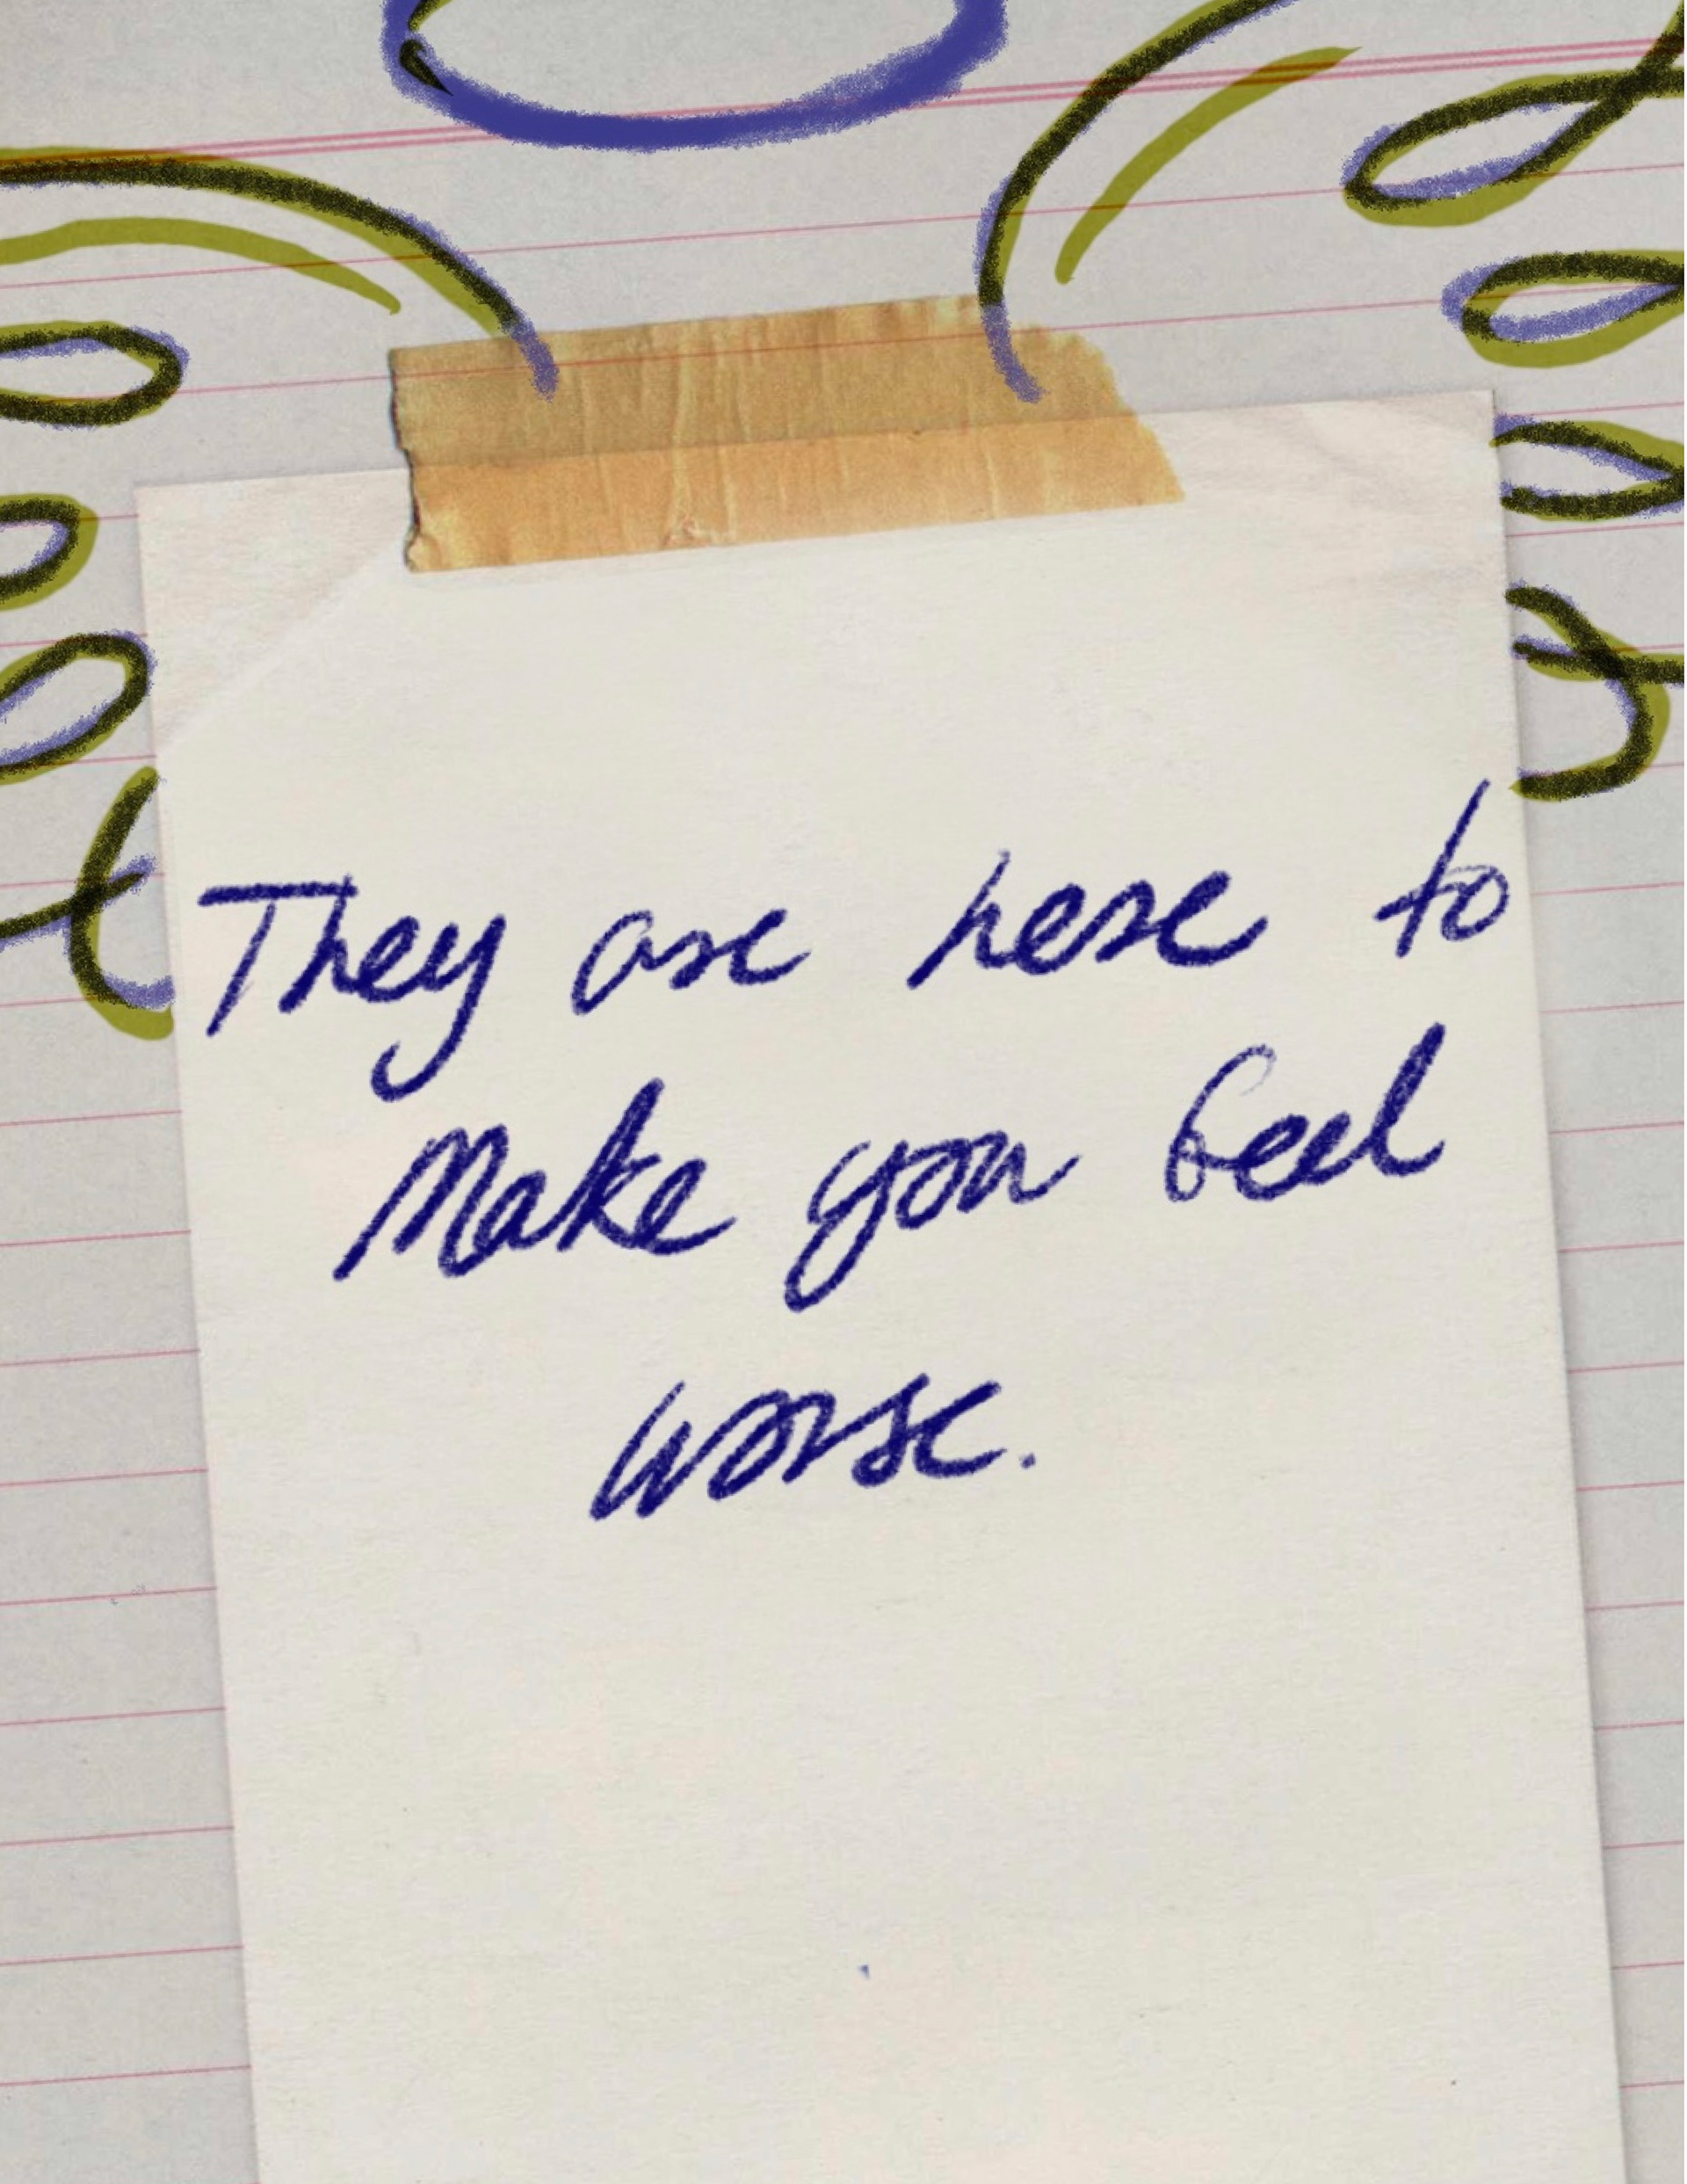 They are here to
Make you feel
worse.